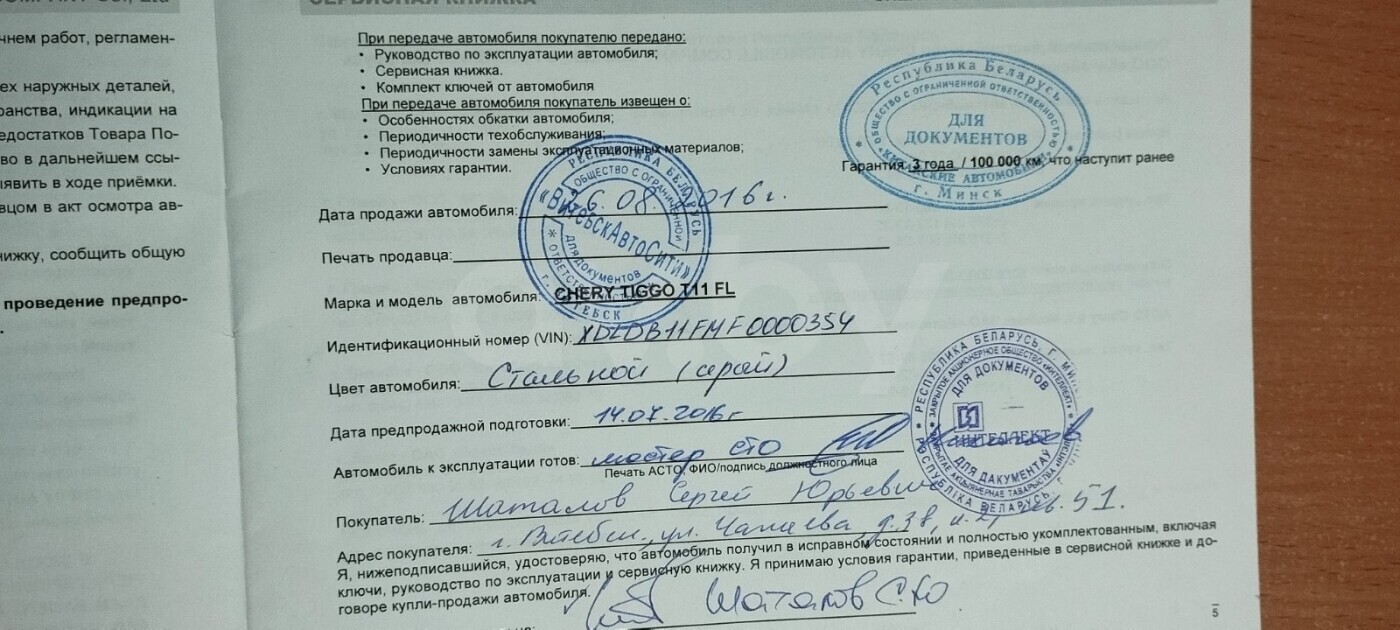 СЕРВИСНАЯ КНИЖКА
чнем работ, регламен-
ех наружных деталей,
ранства, индикации на
едостатков Товара По-
во в дальнейшем ссы-
ыявить в ходе приёмки.
вцом в акт осмотра ав-
нижку, сообщить общую
проведение предпро-
При передаче автомобиля покупателю передано:
• Руководство по эксплуатации автомобиля;
• Сервисная книжка.
• Комплект ключей от автомобиля
При передаче автомобиля покупатель извещен о:
• Особенностях обкатки автомобиля;
• Периодичности техобслуживания;
• Периодичности замены эксплуатационных материалов;
• Условиях гарантии.
Республика Беларусь
ОБЩЕСТВО С ОГРАНИЧЕННОЙ ОТВЕТСТВЕННОСТЬЮ
ДЛЯ
ДОКУМЕНТОВ
АВТОМОБИЛИ
г. Минск
Гарантия 3 года / 100 000 км, что наступит ранее
Дата продажи автомобиля: 26.08.2016г.
РЕСПУБЛИКА БЕЛАРУСЬ
ОБЩЕСТВО С ОГРАНИЧЕННОЙ
«ВитебскАвтоСити»
Для документов
Печать продавца:
Марка и модель автомобиля: CHERY TIGGO T11 FL
Идентификационный номер (VIN): XDLDB11FMF0000354
Цвет автомобиля: Стальной (серый)
Дата предпродажной подготовки: 14.07.2016г
Автомобиль к эксплуатации готов: мастер СТО
Печать АСТО, ФИО/подпись должностного лица
РЕСПУБЛИКА БЕЛАРУСЬ, Г. МИНСК
ЗАКРЫТОЕ АКЦИОНЕРНОЕ ОБЩЕСТВО «ИНТЕЛЛЕКТ»
ДЛЯ ДОКУМЕНТОВ
ИНТЕЛЛЕКТ
ДЛЯ ДАКУМЕНТАЎ
РЭСПУБЛІКА БЕЛАРУСЬ, Г.
Покупатель: Шаталов Сергей Юрьевич
Адрес покупателя: г. Витебск, ул. Чапаева, д.38, к.2, кв.51.
Я, нижеподписавшийся, удостоверяю, что автомобиль получил в исправном состоянии и полностью укомплектованным, включая
ключи, руководство по эксплуатации и сервисную книжку. Я принимаю условия гарантии, приведенные в сервисной книжке и до-
говоре купли-продажи автомобиля.
Шаталов С.Ю
5